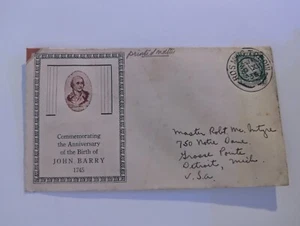 printed matter
Commemorating
the Anniversary
of the Birth of
JOHN BARRY
1745
Master Robt. Mc Intyre
750 Notre Dame
Grosse Pointe
Detroit, Mich.
U.S.A.